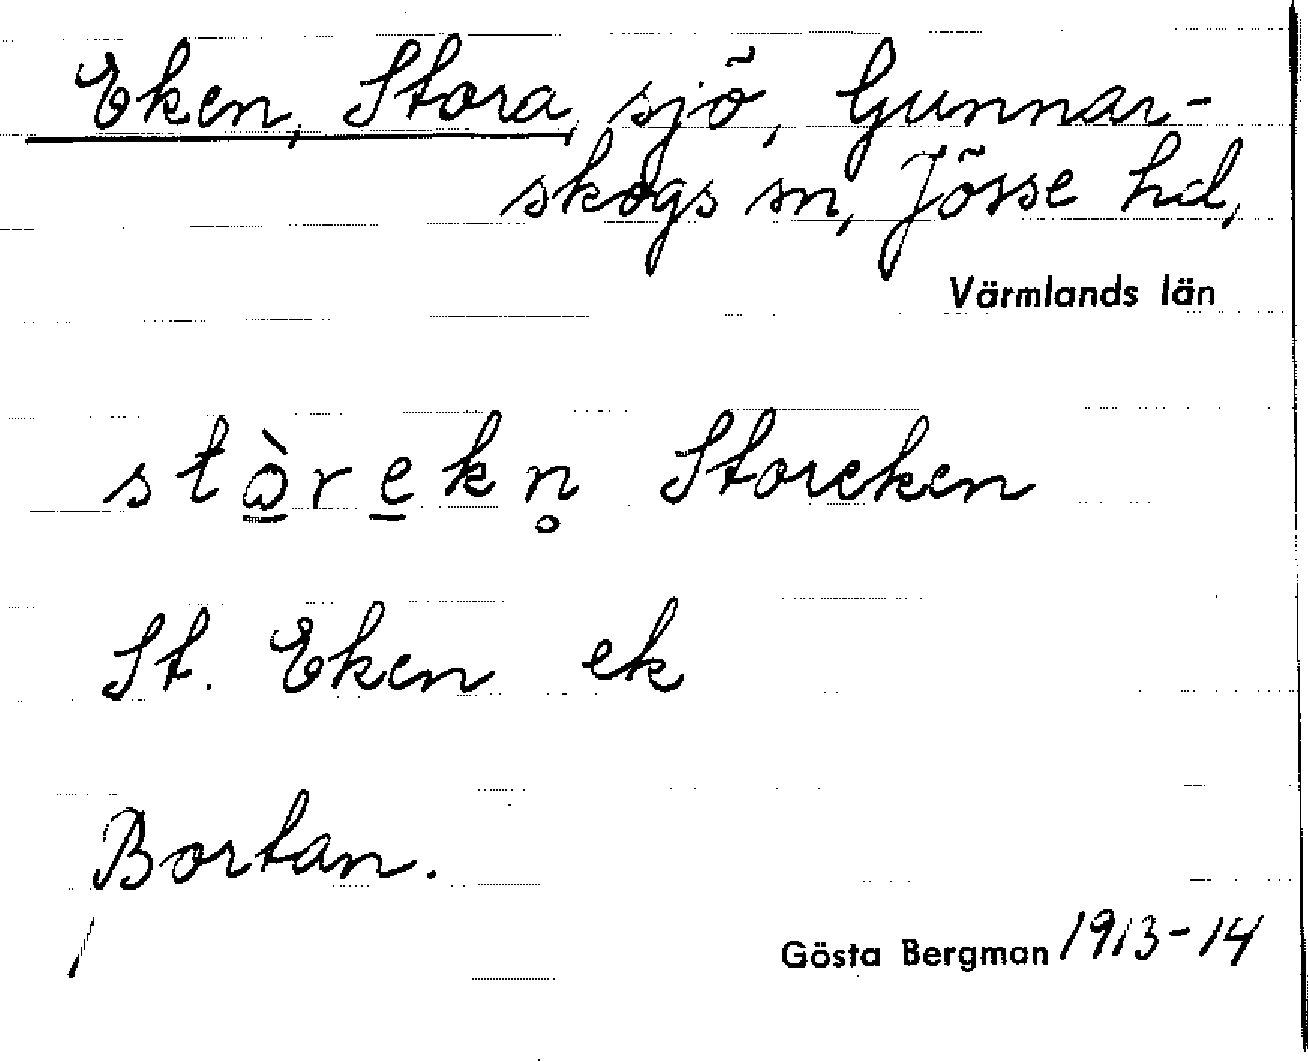 Eken, Stora, sjö, Gunnar-
skogs sn, Jösse hd,
Värmlands län
stɔ̠̀re̠kn̥ Storeken
St. Eken ek
Bortan.
Gösta Bergman 1913-14